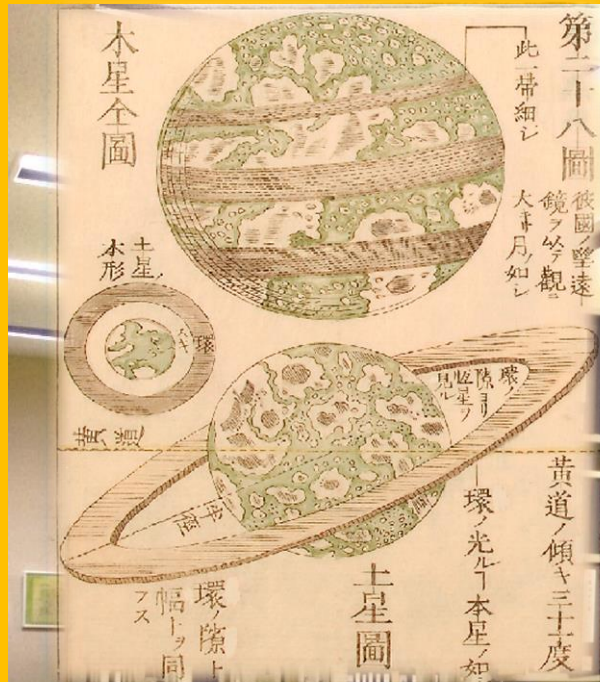 第二十八圖
彼國ノ望遠
鏡ヲ以テ觀ニ
大キ月ノ如シ
此一帯細シ
木星全圖
土星ノ
本形
環
黄道
環ノ
隙ヨリ
恆星ヲ
見ル
黄道ノ傾キ三十一度
環ノ光ルヿ本星ノ如
土星圖
環ノ隙ト
幅ト同
フス